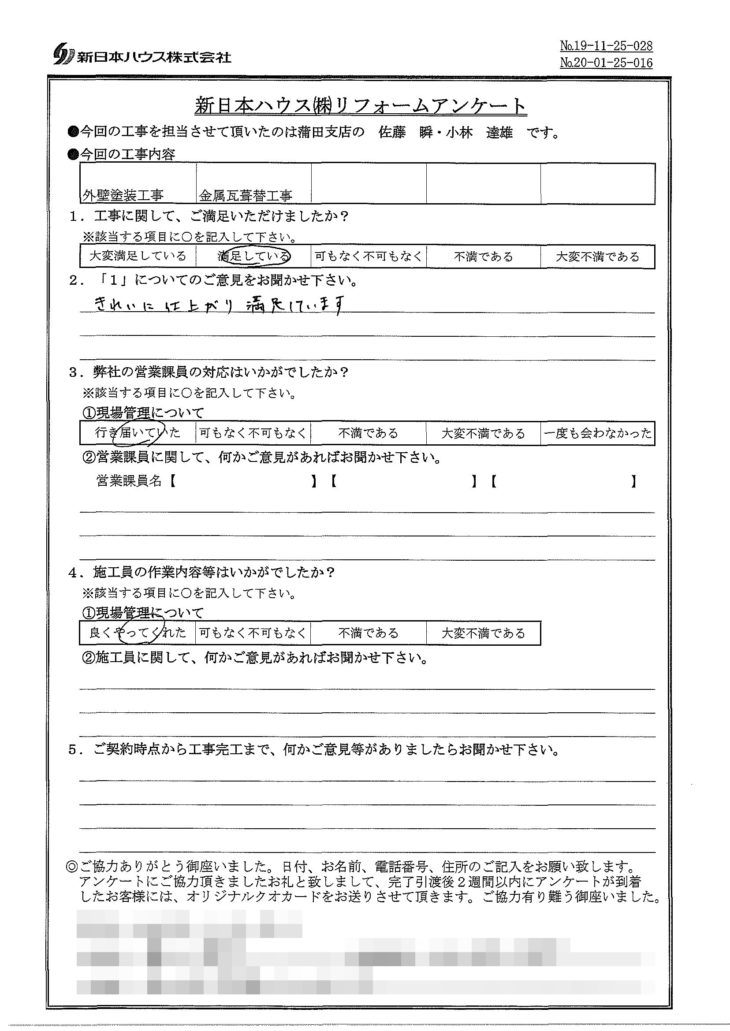 新日本ハウス株式会社
№19-11-25-028
№20-01-25-016
新日本ハウス㈱リフォームアンケート
●今回の工事を担当させて頂いたのは蒲田支店の　佐藤　瞬・小林　達雄　です。
●今回の工事内容
外壁塗装工事　金属瓦葺替工事
1．工事に関して、ご満足いただけましたか？
※該当する項目に○を記入して下さい。
大変満足している　満足している　可もなく不可もなく　不満である　大変不満である
2．「1」についてのご意見をお聞かせ下さい。
きれいに仕上がり満足しています
3．弊社の営業課員の対応はいかがでしたか？
※該当する項目に○を記入して下さい。
①現場管理について
行き届いていた　可もなく不可もなく　不満である　大変不満である　一度も会わなかった
②営業課員に関して、何かご意見があればお聞かせ下さい。
営業課員名【　】【　】【　】
4．施工員の作業内容等はいかがでしたか？
※該当する項目に○を記入して下さい。
①現場管理について
良くやってくれた　可もなく不可もなく　不満である　大変不満である
②施工員に関して、何かご意見があればお聞かせ下さい。
5．ご契約時点から工事完工まで、何かご意見等がありましたらお聞かせ下さい。
◎ご協力ありがとう御座いました。日付、お名前、電話番号、住所のご記入をお願い致します。
アンケートにご協力頂きましたお礼と致しまして、完了引渡後2週間以内にアンケートが到着
したお客様には、オリジナルクオカードをお送りさせて頂きます。ご協力有り難う御座いました。